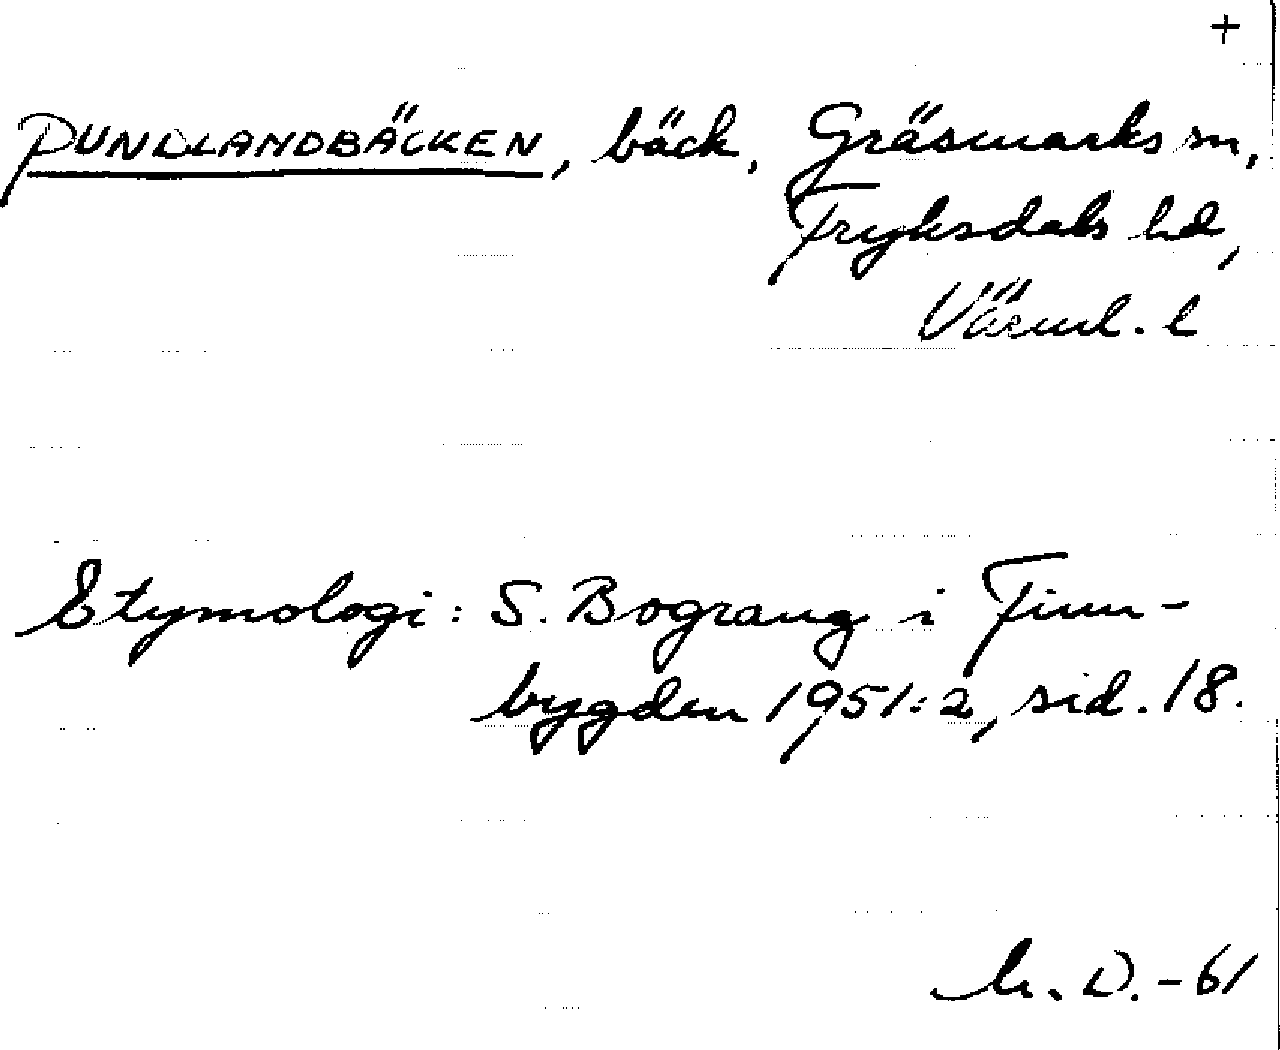 +
PUNDLANDBÄCKEN, bäck, Gräsmarks sn,
Fryksdals hd,
Värml. l
Etymologi: S. Bograng i Finn-
bygden 1951:2, sid. 18.
D. -61